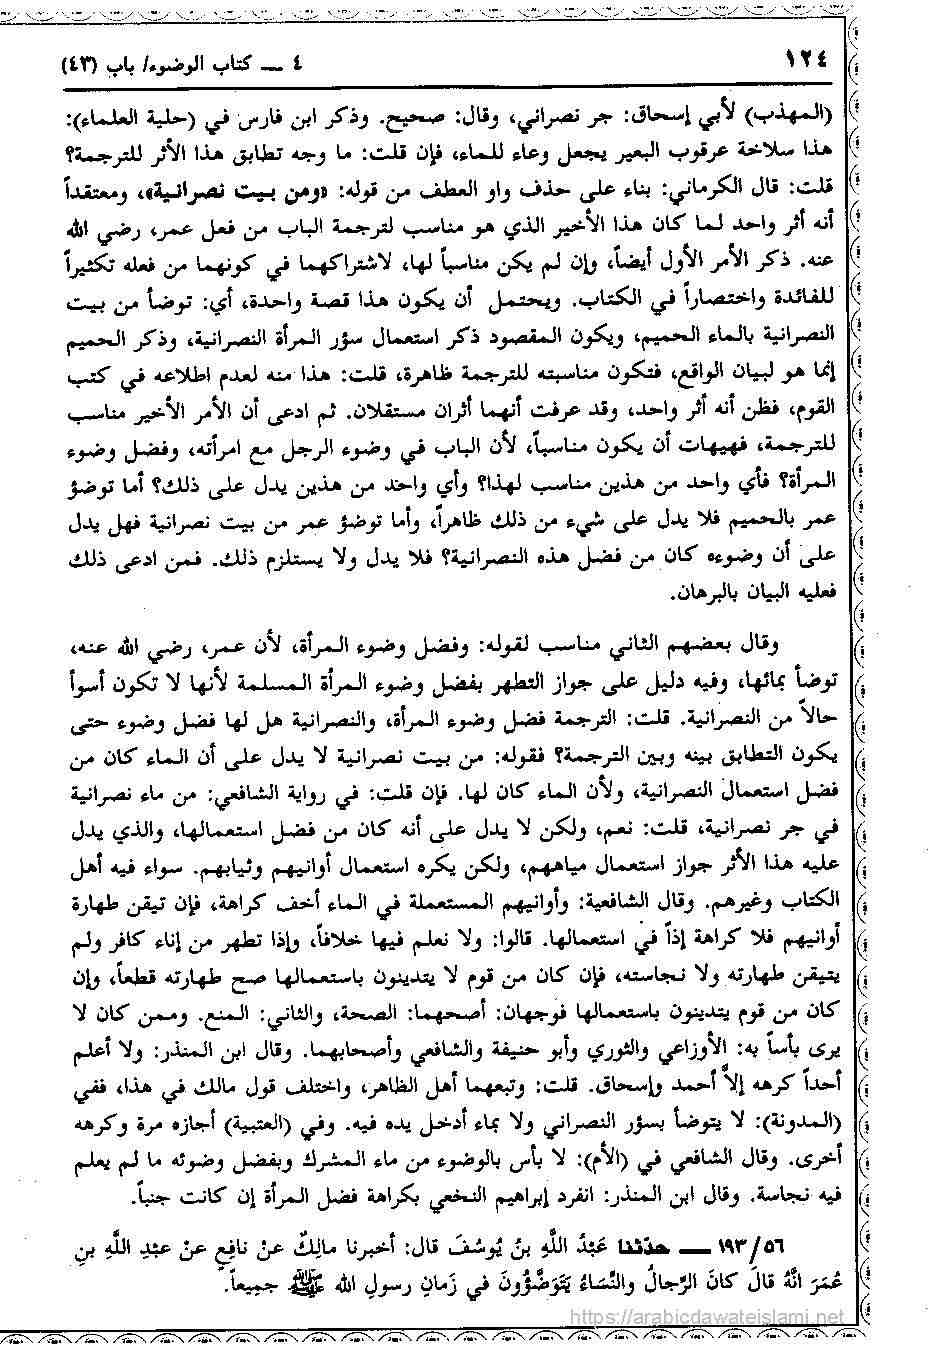 ١٢٤
٤ ــ كتاب الوضوء/ باب (٤٣)
(المهذب) لأبي إسحاق: جر نصراني، وقال: صحيح. وذكر ابن فارس في (حلية العلماء):
هذا سلاخة عرقوب البعير يجعل وعاء للماء، فإن قلت: ما وجه تطابق هذا الأثر للترجمة؟
قلت: قال الكرماني: بناء على حذف واو العطف من قوله: «ومن بيت نصرانية»، ومعتقداً
أنه أثر واحد لما كان هذا الأخير الذي هو مناسب لترجمة الباب من فعل عمر، رضي الله
عنه. ذكر الأمر الأول أيضاً، وإن لم يكن مناسباً لها، لاشتراكهما في كونهما من فعله تكثيراً
للفائدة واختصاراً في الكتاب. ويحتمل أن يكون هذا قصة واحدة، أي: توضأ من بيت
النصرانية بالماء الحميم، ويكون المقصود ذكر استعمال سؤر المرأة النصرانية، وذكر الحميم
إنما هو لبيان الواقع، فتكون مناسبته للترجمة ظاهرة، قلت: هذا منه لعدم اطلاعه في كتب
القوم، فظن أنه أثر واحد، وقد عرفت أنهما أثران مستقلان. ثم ادعى أن الأمر الأخير مناسب
للترجمة، فهيهات أن يكون مناسباً، لأن الباب في وضوء الرجل مع امرأته، وفضل وضوء
المرأة؟ فأي واحد من هذين مناسب لهذا؟ وأي واحد من هذين يدل على ذلك؟ أما توضؤ
عمر بالحميم فلا يدل على شيء من ذلك ظاهراً، وأما توضؤ عمر من بيت نصرانية فهل يدل
على أن وضوءه كان من فضل هذه النصرانية؟ فلا يدل ولا يستلزم ذلك. فمن ادعى ذلك
فعليه البيان بالبرهان.
وقال بعضهم الثاني مناسب لقوله: وفضل وضوء المرأة، لأن عمر، رضي الله عنه،
توضأ بمائها، وفيه دليل على جواز التطهر بفضل وضوء المرأة المسلمة لأنها لا تكون أسوأ
حالاً من النصرانية. قلت: الترجمة فضل وضوء المرأة، والنصرانية هل لها فضل وضوء حتى
يكون التطابق بينه وبين الترجمة؟ فقوله: من بيت نصرانية لا يدل على أن الماء كان من
فضل استعمال النصرانية، ولأن الماء كان لها. فإن قلت: في رواية الشافعي: من ماء نصرانية
في جر نصرانية، قلت: نعم، ولكن لا يدل على أنه كان من فضل استعمالها، والذي يدل
عليه هذا الأثر جواز استعمال مياههم، ولكن يكره استعمال أوانيهم وثيابهم. سواء فيه أهل
الكتاب وغيرهم. وقال الشافعية: وأوانيهم المستعملة في الماء أخف كراهة، فإن تيقن طهارة
أوانيهم فلا كراهة إذاً في استعمالها. قالوا: ولا نعلم فيها خلافاً، وإذا تطهر من إناء كافر ولم
يتيقن طهارته ولا نجاسته، فإن كان من قوم لا يتدينون باستعمالها صح طهارته قطعاً، وإن
كان من قوم يتدينون باستعمالها فوجهان: أصحهما: الصحة، والثاني: المنع. وممن كان لا
يرى بأساً به: الأوزاعي والثوري وأبو حنيفة والشافعي وأصحابهما. وقال ابن المنذر: ولا أعلم
أحداً كرهه إلاَّ أحمد وإسحاق. قلت: وتبعهما أهل الظاهر، واختلف قول مالك في هذا، ففي
(المدونة): لا يتوضأ بسؤر النصراني ولا بماء أدخل يده فيه. وفي (العتبية) أجازه مرة وكرهه
أخرى. وقال الشافعي في (الأم): لا بأس بالوضوء من ماء المشرك وبفضل وضوئه ما لم يعلم
فيه نجاسة. وقال ابن المنذر: انفرد إبراهيم النخعي بكراهة فضل المرأة إن كانت جنباً.
١٩٣/٥٦ ــ حدّثنا عَبْدُ اللَّهِ بنُ يُوسُفَ قال: أخبرنا مالِكٌ عنْ نافِعٍ عنْ عبْدِ اللَّهِ بنِ
عُمَرَ أنَّهُ قالَ كانَ الرِّجالُ والنِّسَاءُ يَتَوَضَّؤُونَ في زَمانِ رسولِ الله ﷺ جميعاً.
https://arabicdawateislami.net